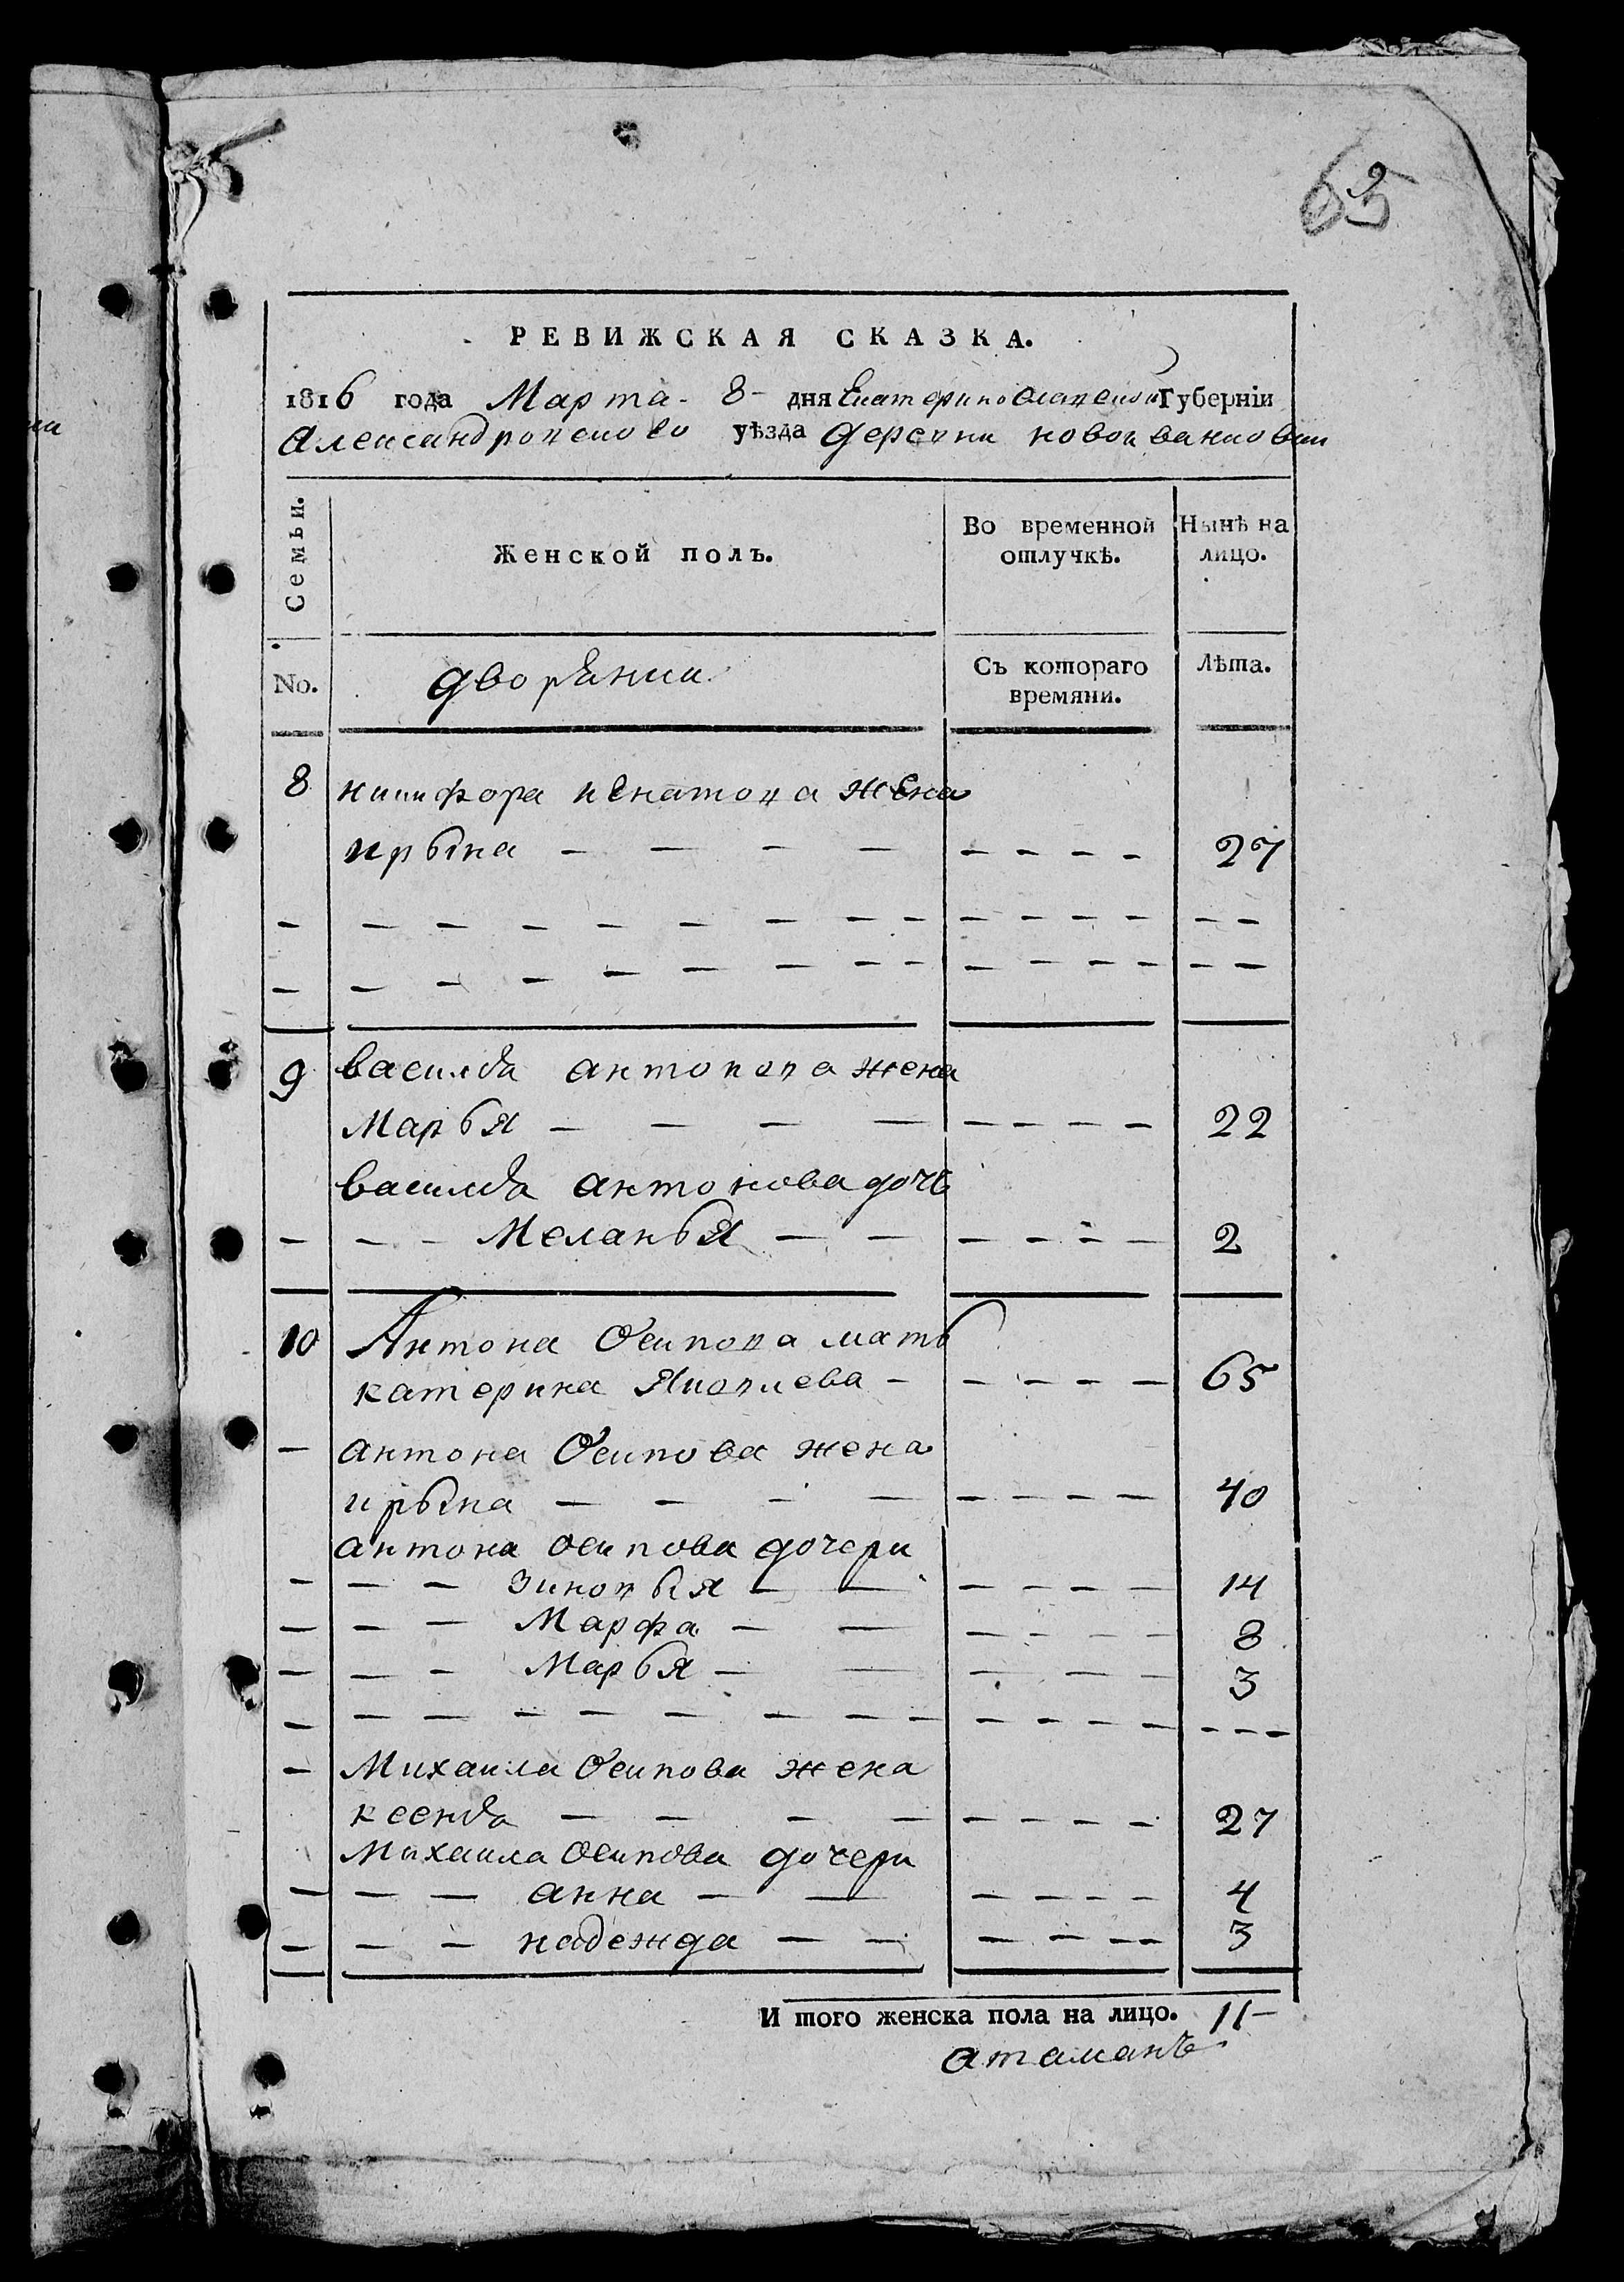 65
РЕВИЖСКАЯ СКАЗКА.
1816 года Марта 8 дня Екатеринославской Губерніи
Александровского уѣзда деревни новоивановки
Семьи.
Женской полъ.
Во временной отлучкѣ.
Нынѣ на лицо.
No.
дворянии
Съ котораго времяни.
Лѣта.
8 никифора игнатова жена
ирына — — — — — — — — 27
9 василя антонова жена
Марья — — — — — — — — 22
василя антонова дочь
— — — Меланья — — — — — — 2
10 Антона Осипова мать
катерина — — — — — 65
— антона Осипова жена
ирына — — — — — — — — 40
антона осипова дочери
— — — зиновья — — — — — — 14
— — — Марфа — — — — — — 8
— — — Марья — — — — — 3
— Михаила Осипова жена
ксенья — — — — — — — — 27
Михаила Осипова дочери
— — — анна — — — — — — 4
— — — надежда — — — — — — 3
И того женска пола на лицо. 11—
атаманъ